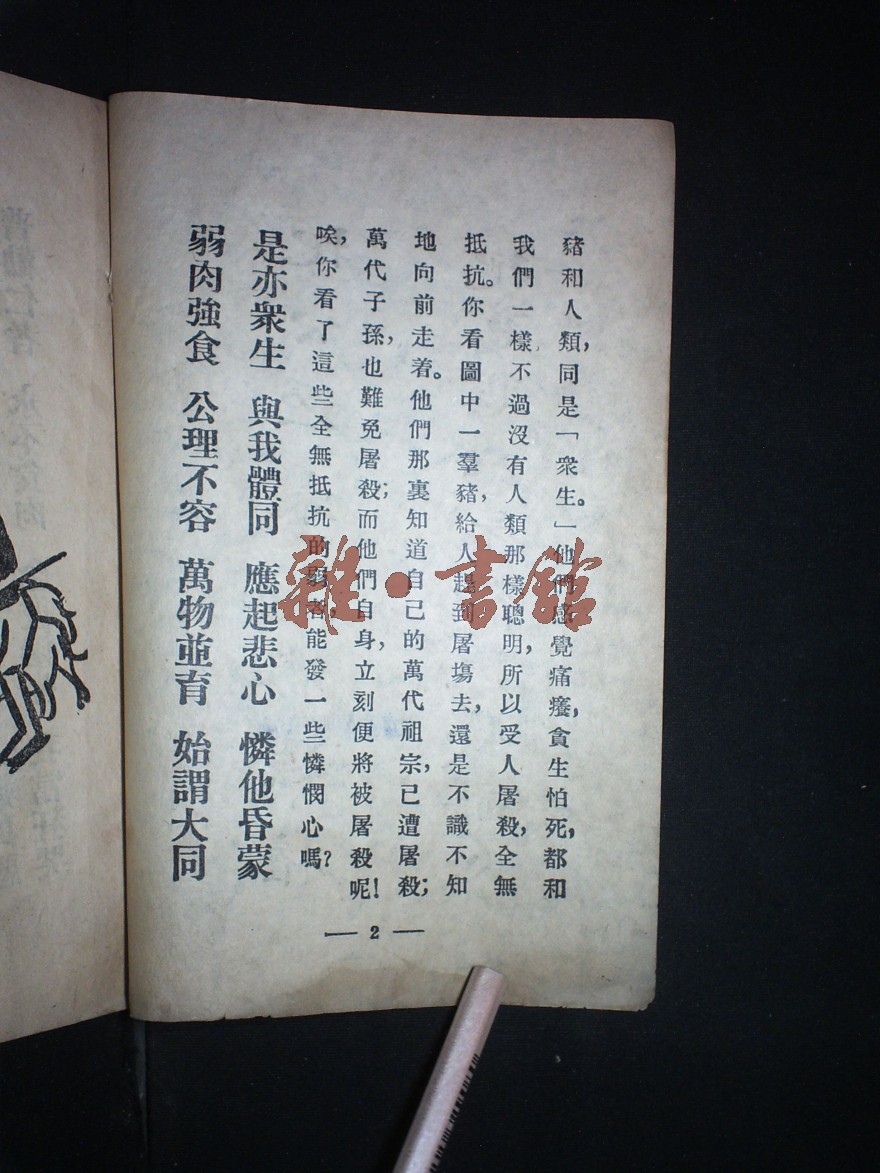 豬和人類,同是「衆生。」他們感覺痛癢,貪生怕死,都和
我們一樣.不過沒有人類那樣聰明,所以受人屠殺,全無
抵抗。你看圖中一羣豬,給人趕到屠塲去,還是不識不知
地向前走着。他們那裏知道自己的萬代祖宗,已遭屠殺;
萬代子孫,也難免屠殺;而他們自身,立刻便將被屠殺呢!
唉,你看了這些全無抵抗的弱者,能發一些憐憫心嗎?
是亦衆生 與我體同 應起悲心 憐他昏蒙
弱肉強食 公理不容 萬物並育 始謂大同
— 2 —
雜·書館